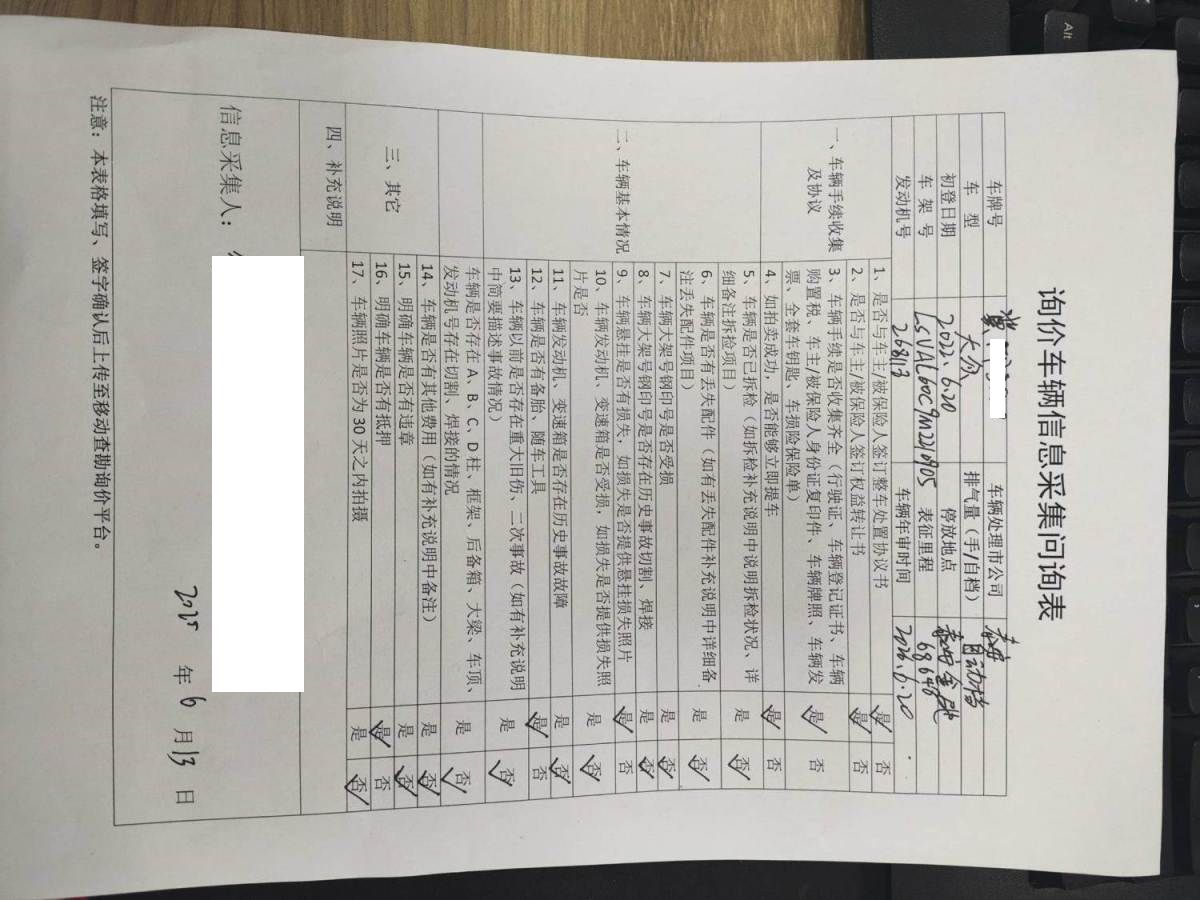 询价车辆信息采集问询表
车牌号 冀 车辆处理市公司
车 型 大众 排气量（手/自档） 自动档
初登日期 2022.6.20 停放地点
车 架 号 表征里程 68648
发动机号 车辆年审时间 2026.6.20
一、车辆手续收集及协议
1、是否与车主/被保险人签订整车处置协议书 是✓ 否
2、是否与车主/被保险人签订权益转让书 是✓ 否
3、车辆手续是否收集齐全（行驶证、车辆登记证书、车辆
购置税、车主/被保险人身份证复印件、车辆牌照、车辆发
票、全套车钥匙、车损险保险单） 是✓ 否
4、如拍卖成功，是否能够立即提车 是✓ 否
二、车辆基本情况
5、车辆是否已拆检（如拆检补充说明中说明拆检状况、详
细备注拆检项目） 是 否✓
6、车辆是否有丢失配件（如有丢失配件补充说明中详细备
注丢失配件项目） 是 否✓
7、车辆大架号钢印号是否受损 是 否✓
8、车辆大架号钢印号是否存在历史事故切割、焊接 是 否✓
9、车辆悬挂是否有损失，如损失是否提供悬挂损失照片 是✓ 否
10、车辆发动机、变速箱是否受损，如损失是否提供损失照
片是否 是 否✓
11、车辆发动机、变速箱是否存在历史事故故障 是 否✓
12、车辆是否有备胎、随车工具 是✓ 否
13、车辆以前是否存在重大旧伤、二次事故（如有补充说明
中简要描述事故情况） 是 否✓
车辆是否存在 A、B、C、D 柱、框架、后备箱、大梁、车顶、
发动机号存在切割、焊接的情况 是 否✓
三、其它
14、车辆是否有其他费用（如有补充说明中备注） 是 否✓
15、明确车辆是否有违章 是 否✓
16、明确车辆是否有抵押 是✓ 否
17、车辆照片是否为 30 天之内拍摄 是 否✓
四、补充说明
信息采集人：
2025 年 6 月 13 日
注意：本表格填写、签字确认后上传至移动查勘询价平台。
Alt